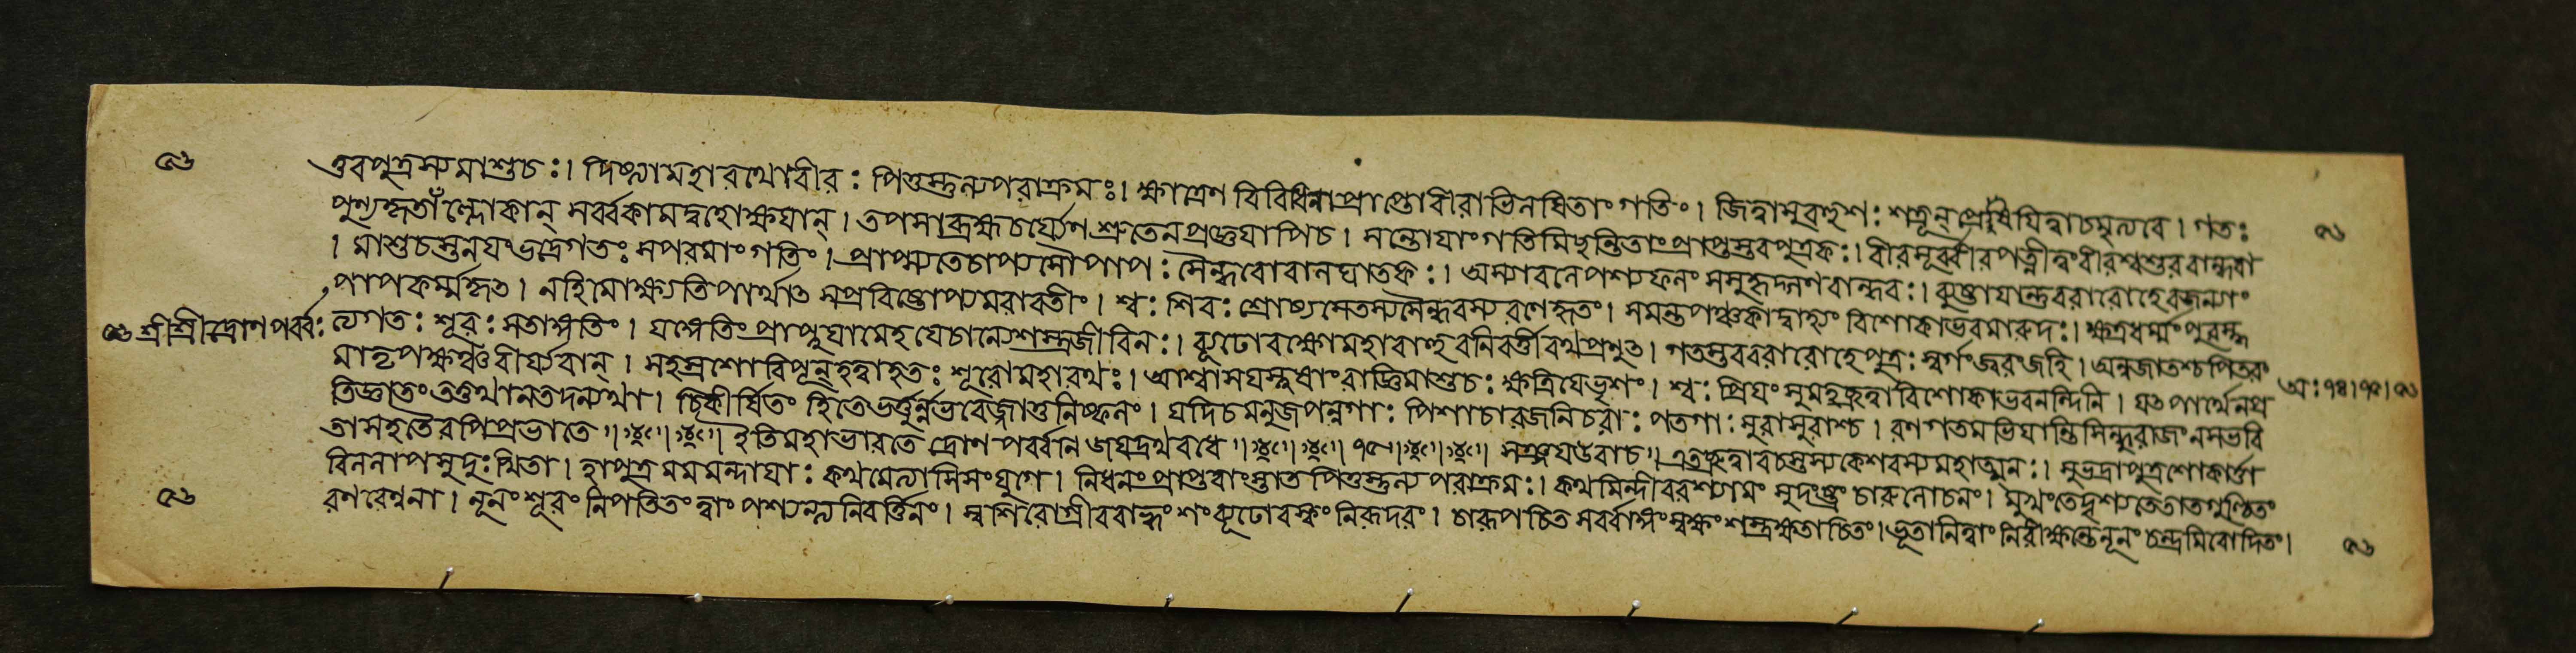 ৫৬
তবপুত্রস্যমাশুচঃ। দিষ্ট্যামহারথোবীরঃ পিতুস্তুল্যপরাক্রমঃ। ক্ষাত্রেণ বিধিনাপ্রাপ্তোবীরাভিলষিতাং গতিং। জিত্বাসুবহুশঃ শত্রূন্ প্রেষয়িত্বাচমৃত্যবে। গতঃ
পুণ্যকৃতাঁল্লোকান্ সর্ব্বকামদুহোক্ষয়ান্। তপসাব্রহ্মচর্য্যেণ শ্রুতেনপ্রজ্ঞয়াপিচ। সন্তোযাংগতিমিচ্ছন্তিতাংপ্রাপ্তস্তবপুত্রকঃ। বীরসূর্ব্বীরপত্নীত্বংবীরশ্বশুরবান্ধবা ৫৬
। মাশুচস্তনয়ংভদ্রেগতঃ সপরমাং গতিং। প্রাপ্স্যতেচাপ্যসৌপাপঃ সৈন্ধবোবালঘাতকঃ। অস্যাবলেপস্যফলং সসুহৃদ্গণবান্ধবঃ। ব্যুষ্টায়ান্তুবরারোহেরজন্যাং
পাপকর্ম্মকৃৎ। নহিমোক্ষ্যতিপার্থাৎ সপ্রবিষ্টোপ্যমরাবতীং। শ্বঃ শিরঃ শ্রোষ্যসেতস্যসৈন্ধবস্যরণেহৃতং। সমন্তপঞ্চকাদ্বাহ্যং বিশোকাভবমারুদঃ। ক্ষত্রধর্ম্মংপুরস্কৃ
৫৬ শ্রীশ্রীদ্রোণপর্ব্বঃ ত্যগতঃ শূরঃ সতাঙ্গতিং। যাঙ্গতিং প্রাপ্নুয়ামেহ যেচান্যেশস্ত্রজীবিনঃ। ব্যূঢোরস্কোমহাবাহুরনিবর্ত্তীরথপ্রণুৎ। গতস্তববরারোহেপুত্রঃ স্বর্গং জ্বরংজহি। অনুজাতশ্চপিতরং
মাতৃপক্ষঞ্চবীর্য্যবান্। সহস্রশোরিপূন্ হত্বাহতঃ শূরোমহারথঃ। আশ্বাসয়স্নুষাংরাজ্ঞিমাশুচঃ ক্ষত্রিয়েভৃশং। শ্বঃ প্রিয়ং সুমহচ্ছ্রুত্বাবিশোকাভবনন্দিনি। যৎ পার্থেনপ্র অঃ ৭৪। ৭৫। ৫৬
তিজ্ঞাতংতত্তথানতদন্যথা। চিকীর্ষিতং হিতেভর্ত্তুর্ন্নভবেজ্জাতুনিষ্ফলং। যদিচমনুজপন্নগাঃ পিশাচারজনিচরাঃ পতগাঃ সুরাসুরাশ্চ। রণগতমভিয়ান্তিসিন্ধুরাজংনসভবি
তাসহতৈরপিপ্রভাতে॥ ইতিমহাভারতে দ্রোণপর্ব্বনি জয়দ্রথবধে॥ ৭৫॥ সঞ্জয়উবাচ॥ এতচ্ছ্রুত্বাবচস্তস্যকেশবস্যমহাত্মনঃ। সুভদ্রাপুত্রশোকার্ত্তা
বিললাপসুদুঃখিতা। হাপুত্র মমমন্দায়াঃ কথমেত্যাসিসংযুগে। নিধনংপ্রাপ্তবাংস্তাত পিতুস্তুল্যপরাক্রমঃ। কথমিন্দীবরশ্যামং সুদংষ্ট্রং চারুলোচনং। মুখংতেদৃশ্যতেতাতগুণ্ঠিতং
৫৬ রণরেণুনা। নূনং শূরং নিপতিতং ত্বাং পশ্যন্ত্যনিবর্ত্তিনং। সুশিরোগ্রীববাহ্বংশংব্যূঢোরস্কং নিরূদরং। চারূপচিতসর্ব্বাঙ্গংস্বক্ষং শস্ত্রক্ষতাচিতং। ভূতানিত্বাং নিরীক্ষন্তেনূনং চন্দ্রমিবোদিতং। ৫৬